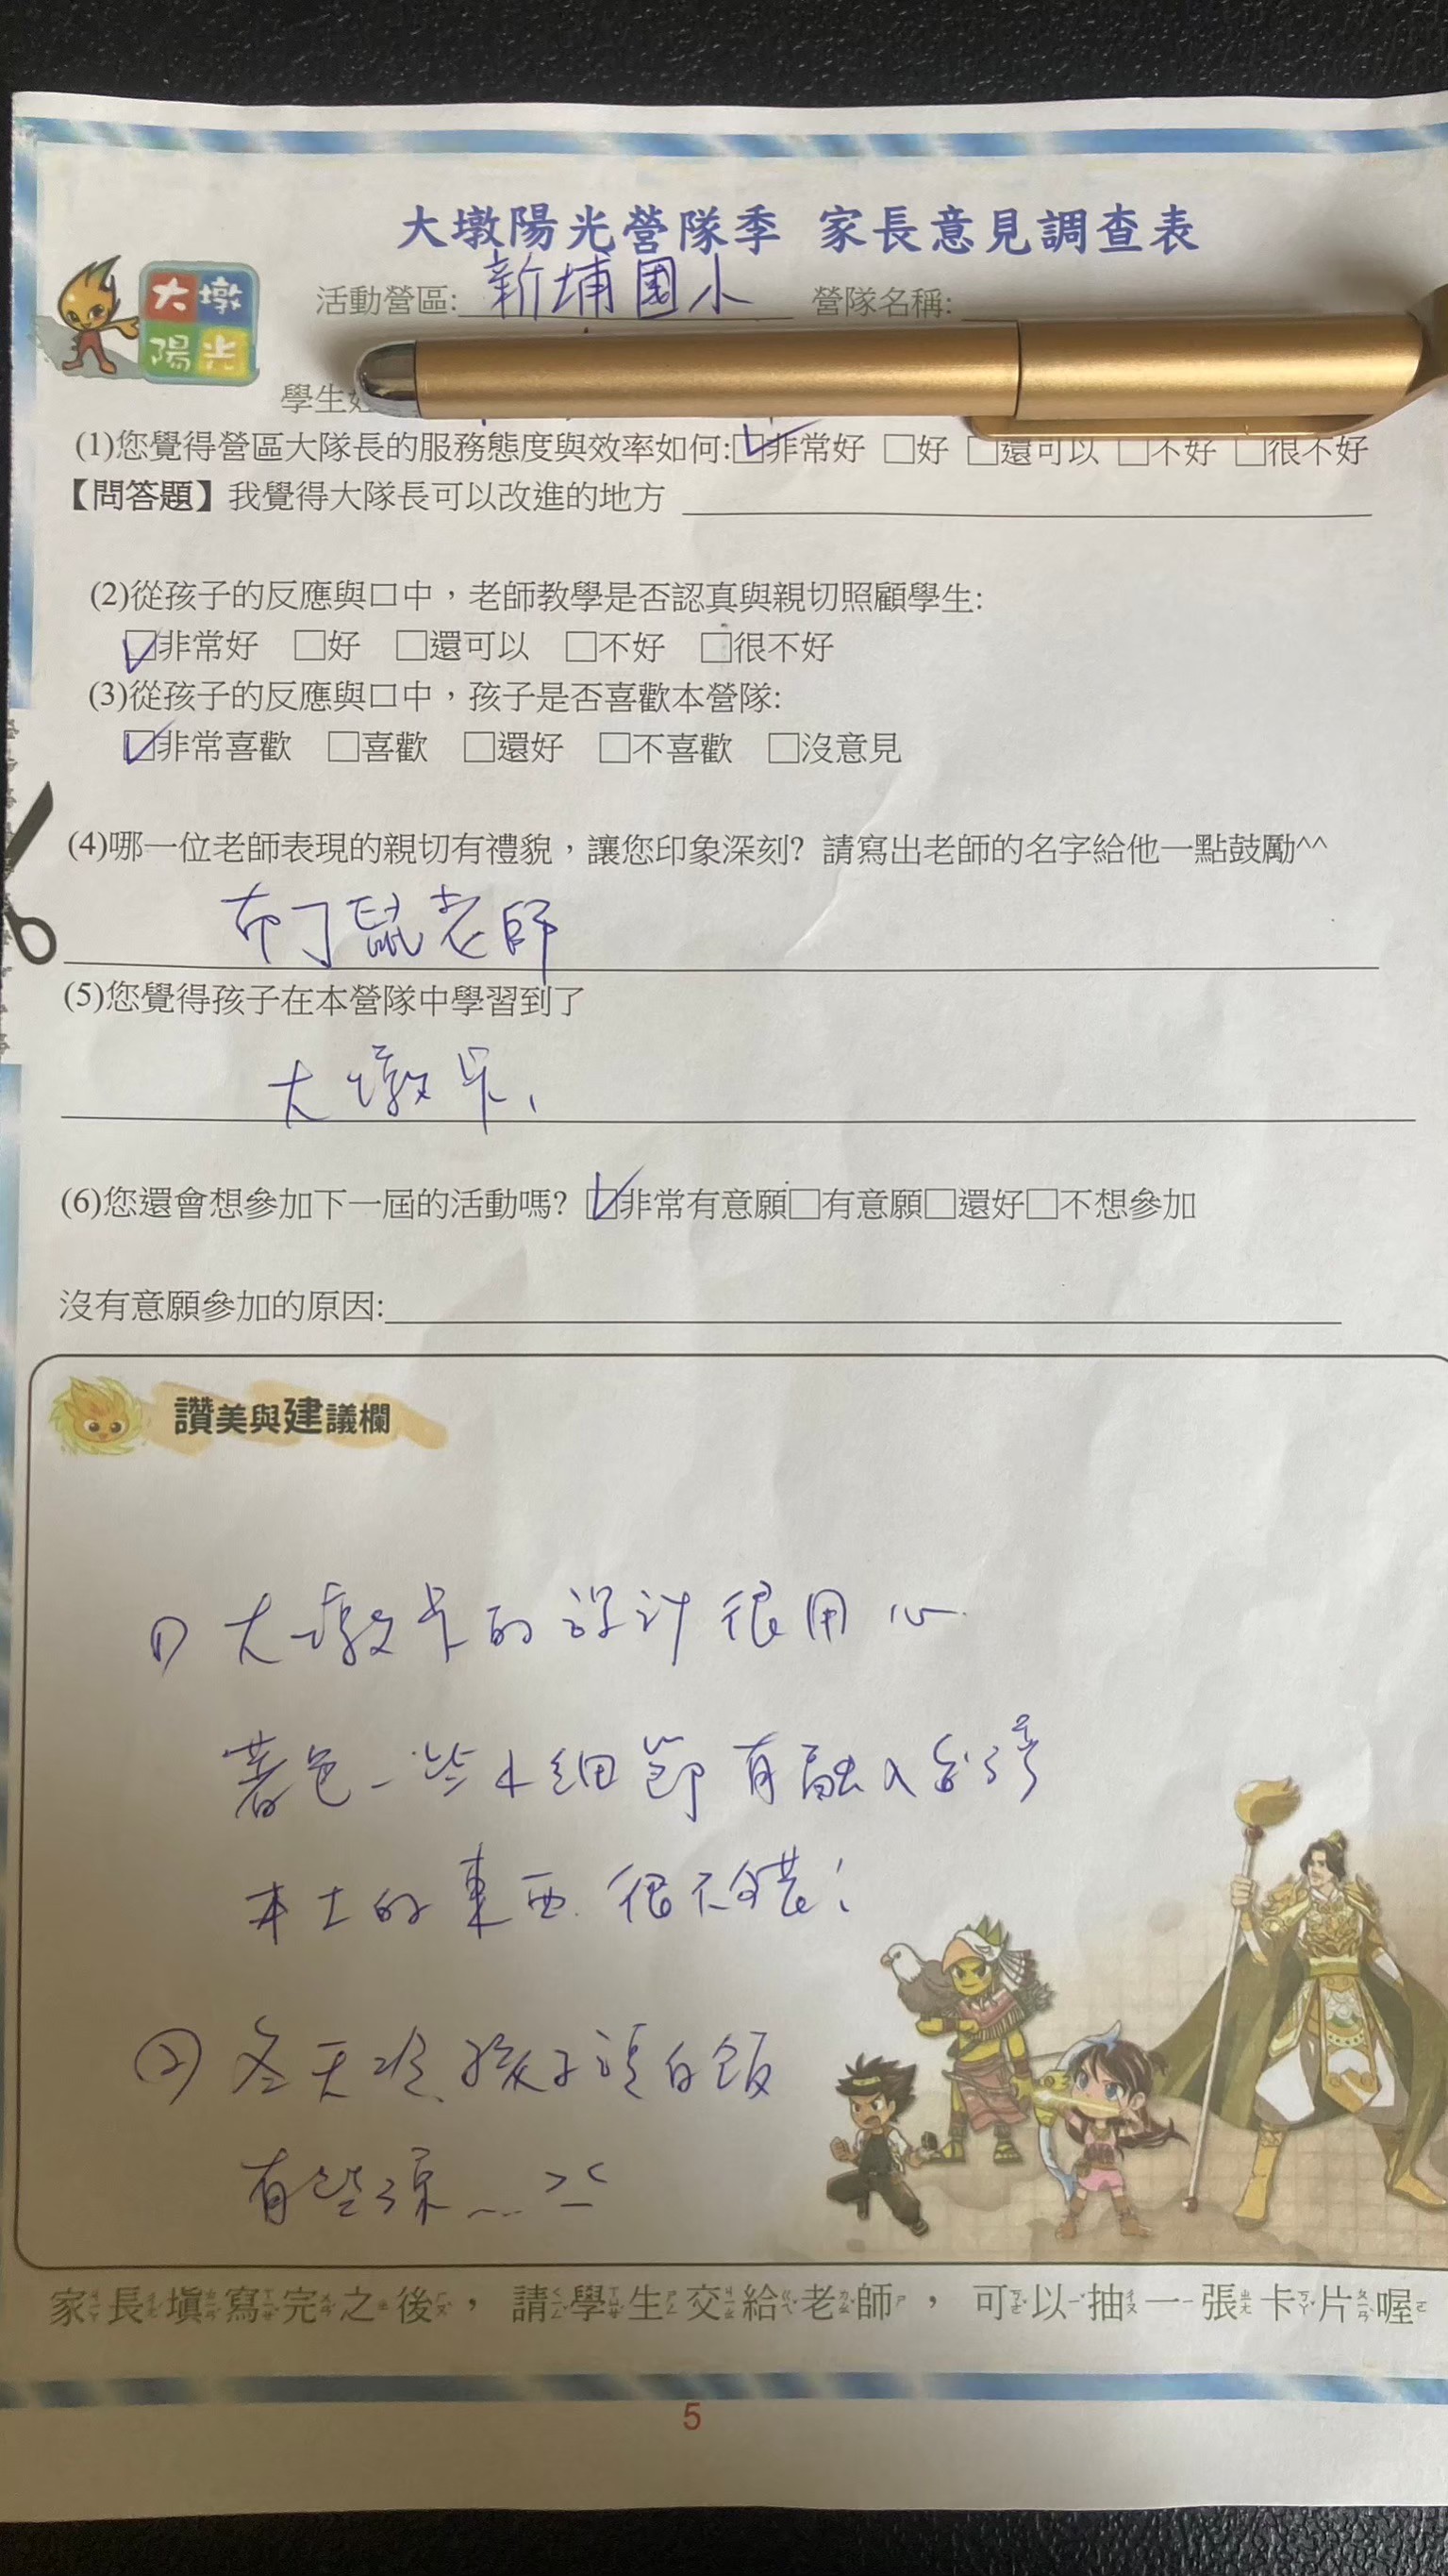 大墩陽光營隊季 家長意見調查表
大墩
陽光
活動營區: 新埔國小 營隊名稱:
學生
(1)您覺得營區大隊長的服務態度與效率如何:☑非常好 □好 □還可以 □不好 □很不好
【問答題】我覺得大隊長可以改進的地方
(2)從孩子的反應與口中，老師教學是否認真與親切照顧學生:
☑非常好 □好 □還可以 □不好 □很不好
(3)從孩子的反應與口中，孩子是否喜歡本營隊:
☑非常喜歡 □喜歡 □還好 □不喜歡 □沒意見
(4)哪一位老師表現的親切有禮貌，讓您印象深刻? 請寫出老師的名字給他一點鼓勵^^
布丁鼠老師
(5)您覺得孩子在本營隊中學習到了
大墩卡、
(6)您還會想參加下一屆的活動嗎? ☑非常有意願□有意願□還好□不想參加
沒有意願參加的原因:
讚美與建議欄
(1) 大墩卡的設計很用心
著色一些小細節有融入台灣
本土的東西 很不錯!
(2) 冬天冷、孩子說白飯
有些涼.... ><
家長填寫完之後，請學生交給老師，可以抽一張卡片喔
5